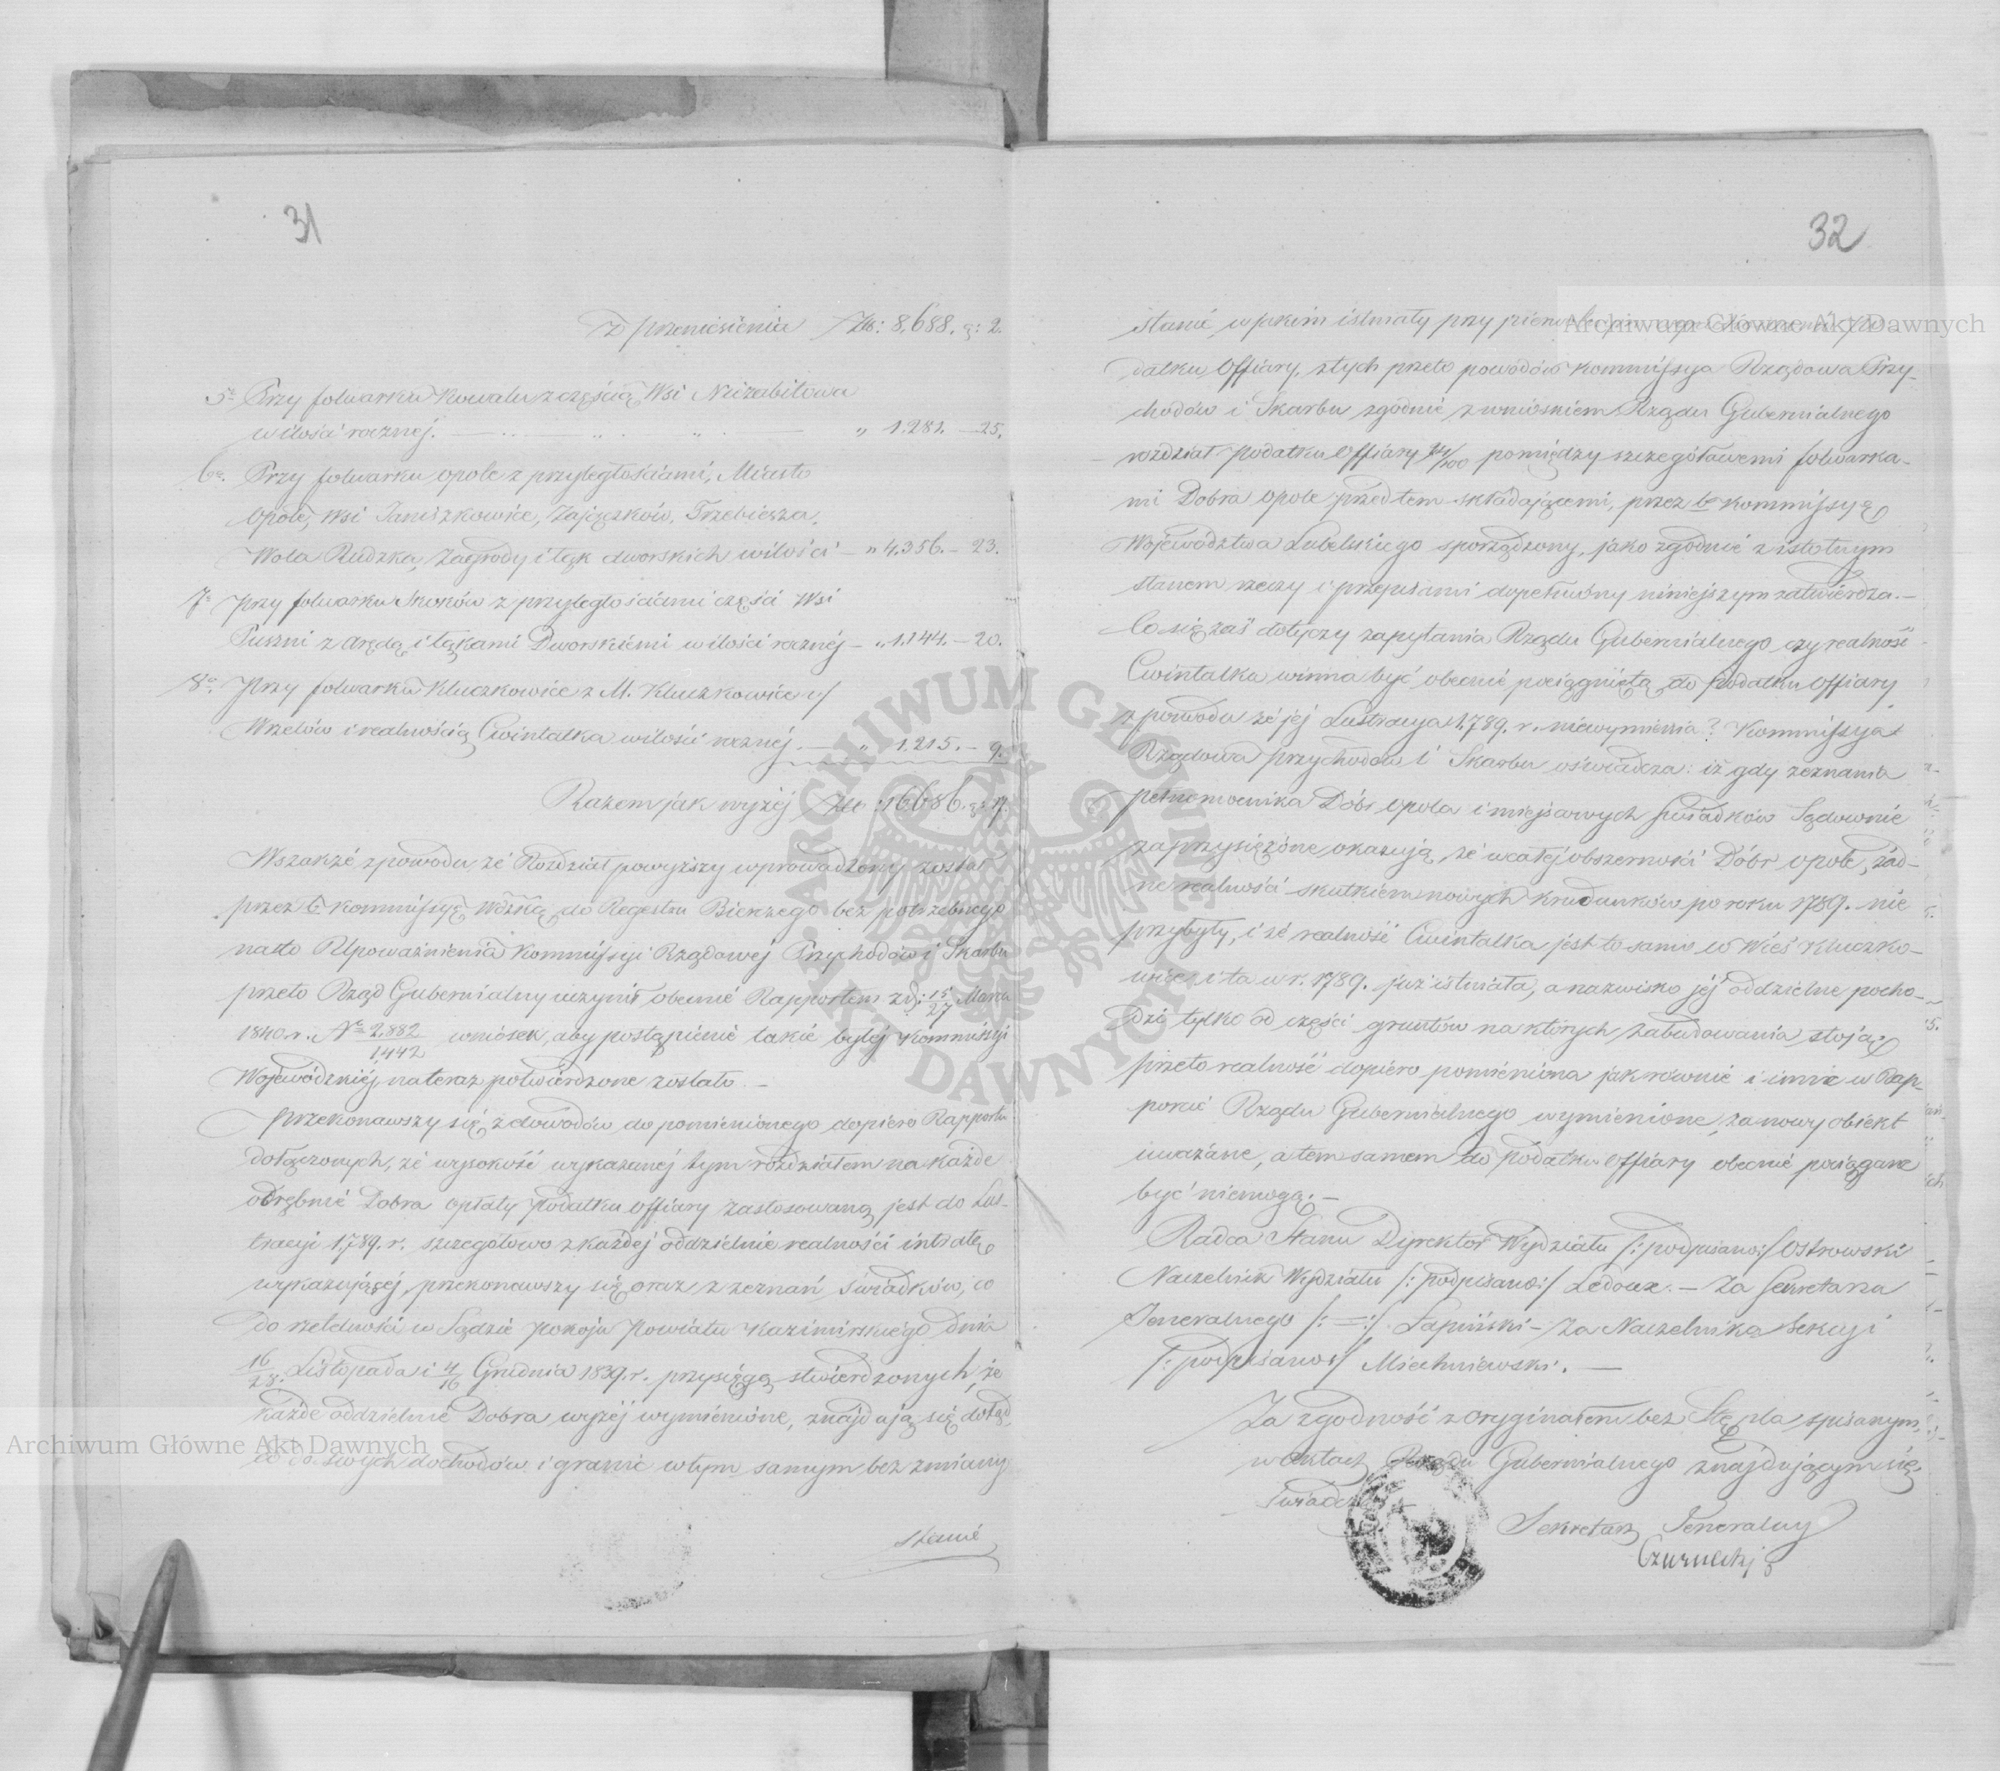 31
Z przeniesienia Złt: 8,688. gr: 2.
5e Przy folwarku Kowalu z częścią Wsi Niezabitowa
w ilości rocznej. — „ 1.281. — 25.
6e. Przy folwarku Opole z przyległościami, Miasto
Opole, Wsi Janiszkowice, Zajączków, Trzebiesza,
Wola Rudzka, Zagrody i łąk dworskich w ilości — „ 4,356. — 23.
7e Przy folwarku Skoków z przyległościami części Wsi
Puszni z arędą i łąkami Dworskiemi w ilości rocznéj — „ 1.144. — 20.
8e. Przy folwarku Kluczkowice z M. Kluczkowice
Wrzelów i realnością Cwintalka w ilości rocznéj. — „ 1.215. — 9.
Razem jak wyżéj Złt: 16686. gr: 19.
Wszakże z powodu, że Rozdział powyższy wprowadzony został
przez b. Kommissyę Wdzką do Regestru Bierczego bez potrzebnego
na to Upoważnienia Kommissyi Rządowej Przychodów i Skarbu
przeto Rząd Gubernialny uczynił obecnie Rapportem z d: 15/27 Marca
1840. r. No 2,882/1,442 wniosek, aby postąpienie takie byłéj Kommissyi
Wojewódzkiéj na teraz potwierdzone zostało. —
Przekonawszy się z dowodów do pomienionego dopiero Rapportu
dołączonych, że wysokość wykazanéj tym rozdziałem na każde
odrębnie Dobra opłaty podatku Offiary zastosowaną jest do Lus-
tracyi 1789. r. szczegółowo z każdéj oddzielnie realności intratę
wykazującéj, przekonawszy się oraz z zeznań świadków, co
do rzetelności w Sądzie Pokoju Powiatu Kazimirskiego dnia
16/28 Listopada i 4/16 Grudnia 1839. r. przysięgą stwierdzonych, że
każde oddzielnie Dobra wyżéj wymienione, znajdują się dotąd,
co do swych dochodów i granic w tym samym bez zmiany
stanie
32
stanie, w jakim istniały przy pierwotnym
datku Offiary, z tych przeto powodów Kommissya Rządowa Przy-
chodów i Skarbu zgodnie z wnioskiem Rządu Gubernialnego
rozdział podatku Offiary 24/100 pomiędzy szczegółowemi folwarka-
mi Dobra Opole przedtem składającemi, przez b. Kommissyę
Województwa Lubelskiego sporządzony, jako zgodnie z istotnym
stanem rzeczy i przepisami dopełniony niniejszym zatwierdza. —
Co się zaś dotyczy zapytania Rządu Gubernialnego, czy realność
Cwintalka winna być obecnie pociągniętą do podatku Offiary
z powodu że jéj Lustracya 1789. r. niewymienia? Kommissya
Rządowa Przychodów i Skarbu oświadcza: iż gdy zeznania
pełnomocnika Dóbr Opola i miejscowych świadków Sądownie
zaprzysiężone okazują, że w całéj obszerności Dóbr Opole, żad-
ne realności skutkiem nowych erudunków po roku 1789. nie
przybyły, i że realność Cwintalka jest to samo co Wieś Kluczko-
wice, i ta w r. 1789. już istniała, a nazwisko jéj oddzielne pocho-
dzi tylko od części gruntów na których zabudowania stoją,
przeto realność dopiero pomieniona jak równie i inne w Rap-
porcie Rządu Gubernialnego wymienione, za nowy obiekt
uważane, a tem samem do podatku Offiary obecnie pociągane
być niemogą. —
Radca Stanu Dyrektor Wydziału /:podpisano:/ Ostrowski
Naczelnik Wydziału /:podpisano:/ Ledoux. — Za Sekretarza
Jeneralnego /: = :/ Łapiński — Za Naczelnika Sekcyi
/:podpisano:/ Miechniewski. —
Za zgodność z oryginałem bez Stępla spisanym,
w aktach Rządu Gubernialnego znajdującym się,
Sekretarz Jeneralny
Archiwum Główne Akt Dawnych
Archiwum Główne Akt Dawnych
ARCHIWUM GŁÓWNE AKT DAWNYCH